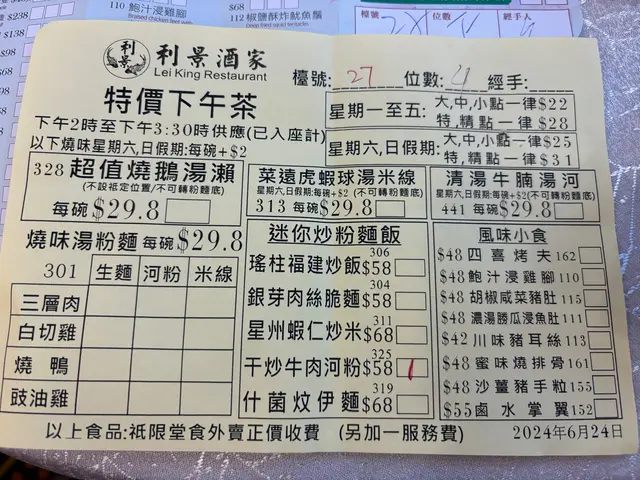 110 鮑汁浸雞腳
Braised chicken beer with
112 椒鹽酥炸魷魚鬚
Deep fried squid tentacles
檯號 位數 經手人
$68
$38
$138
$98
$68
利景
利景酒家
Lei King Restaurant
檯號: 27 位數: 4 經手:
特價下午茶
下午2時至下午3:30時供應(已入座計)
以下燒味星期六,日假期:每碗+$2
星期一至五: 大,中,小點一律$22
特,精點一律$28
星期六,日假期: 大,中,小點一律$25
特,精點一律$31
328 超值燒鵝湯瀨
(不設祗定位置/不可轉粉麵底)
每碗 $29.8
菜遠虎蝦球湯米線
星期六,日假期:每碗+$2(不可轉粉麵底)
313 每碗$29.8
清湯牛腩湯河
星期六,日假期:每碗+$2(不可轉粉麵底)
441 每碗$29.8
燒味湯粉麵 每碗$29.8
301 生麵 河粉 米線
三層肉
白切雞
燒鴨
豉油雞
迷你炒粉麵飯
306
瑤柱福建炒飯$58
304
銀芽肉絲脆麵$58
311
星州蝦仁炒米$68
325
干炒牛肉河粉$58
319
什菌炆伊麵$68
風味小食
$48四喜烤夫162
$48鮑汁浸雞腳110
$48胡椒咸菜豬肚115
$48濃湯勝瓜浸魚肚111
$42川味豬耳絲113
$48蜜味燒排骨161
$48沙薑豬手粒155
$55鹵水掌翼152
以上食品:祗限堂食外賣正價收費 (另加一服務費)
2024年6月24日